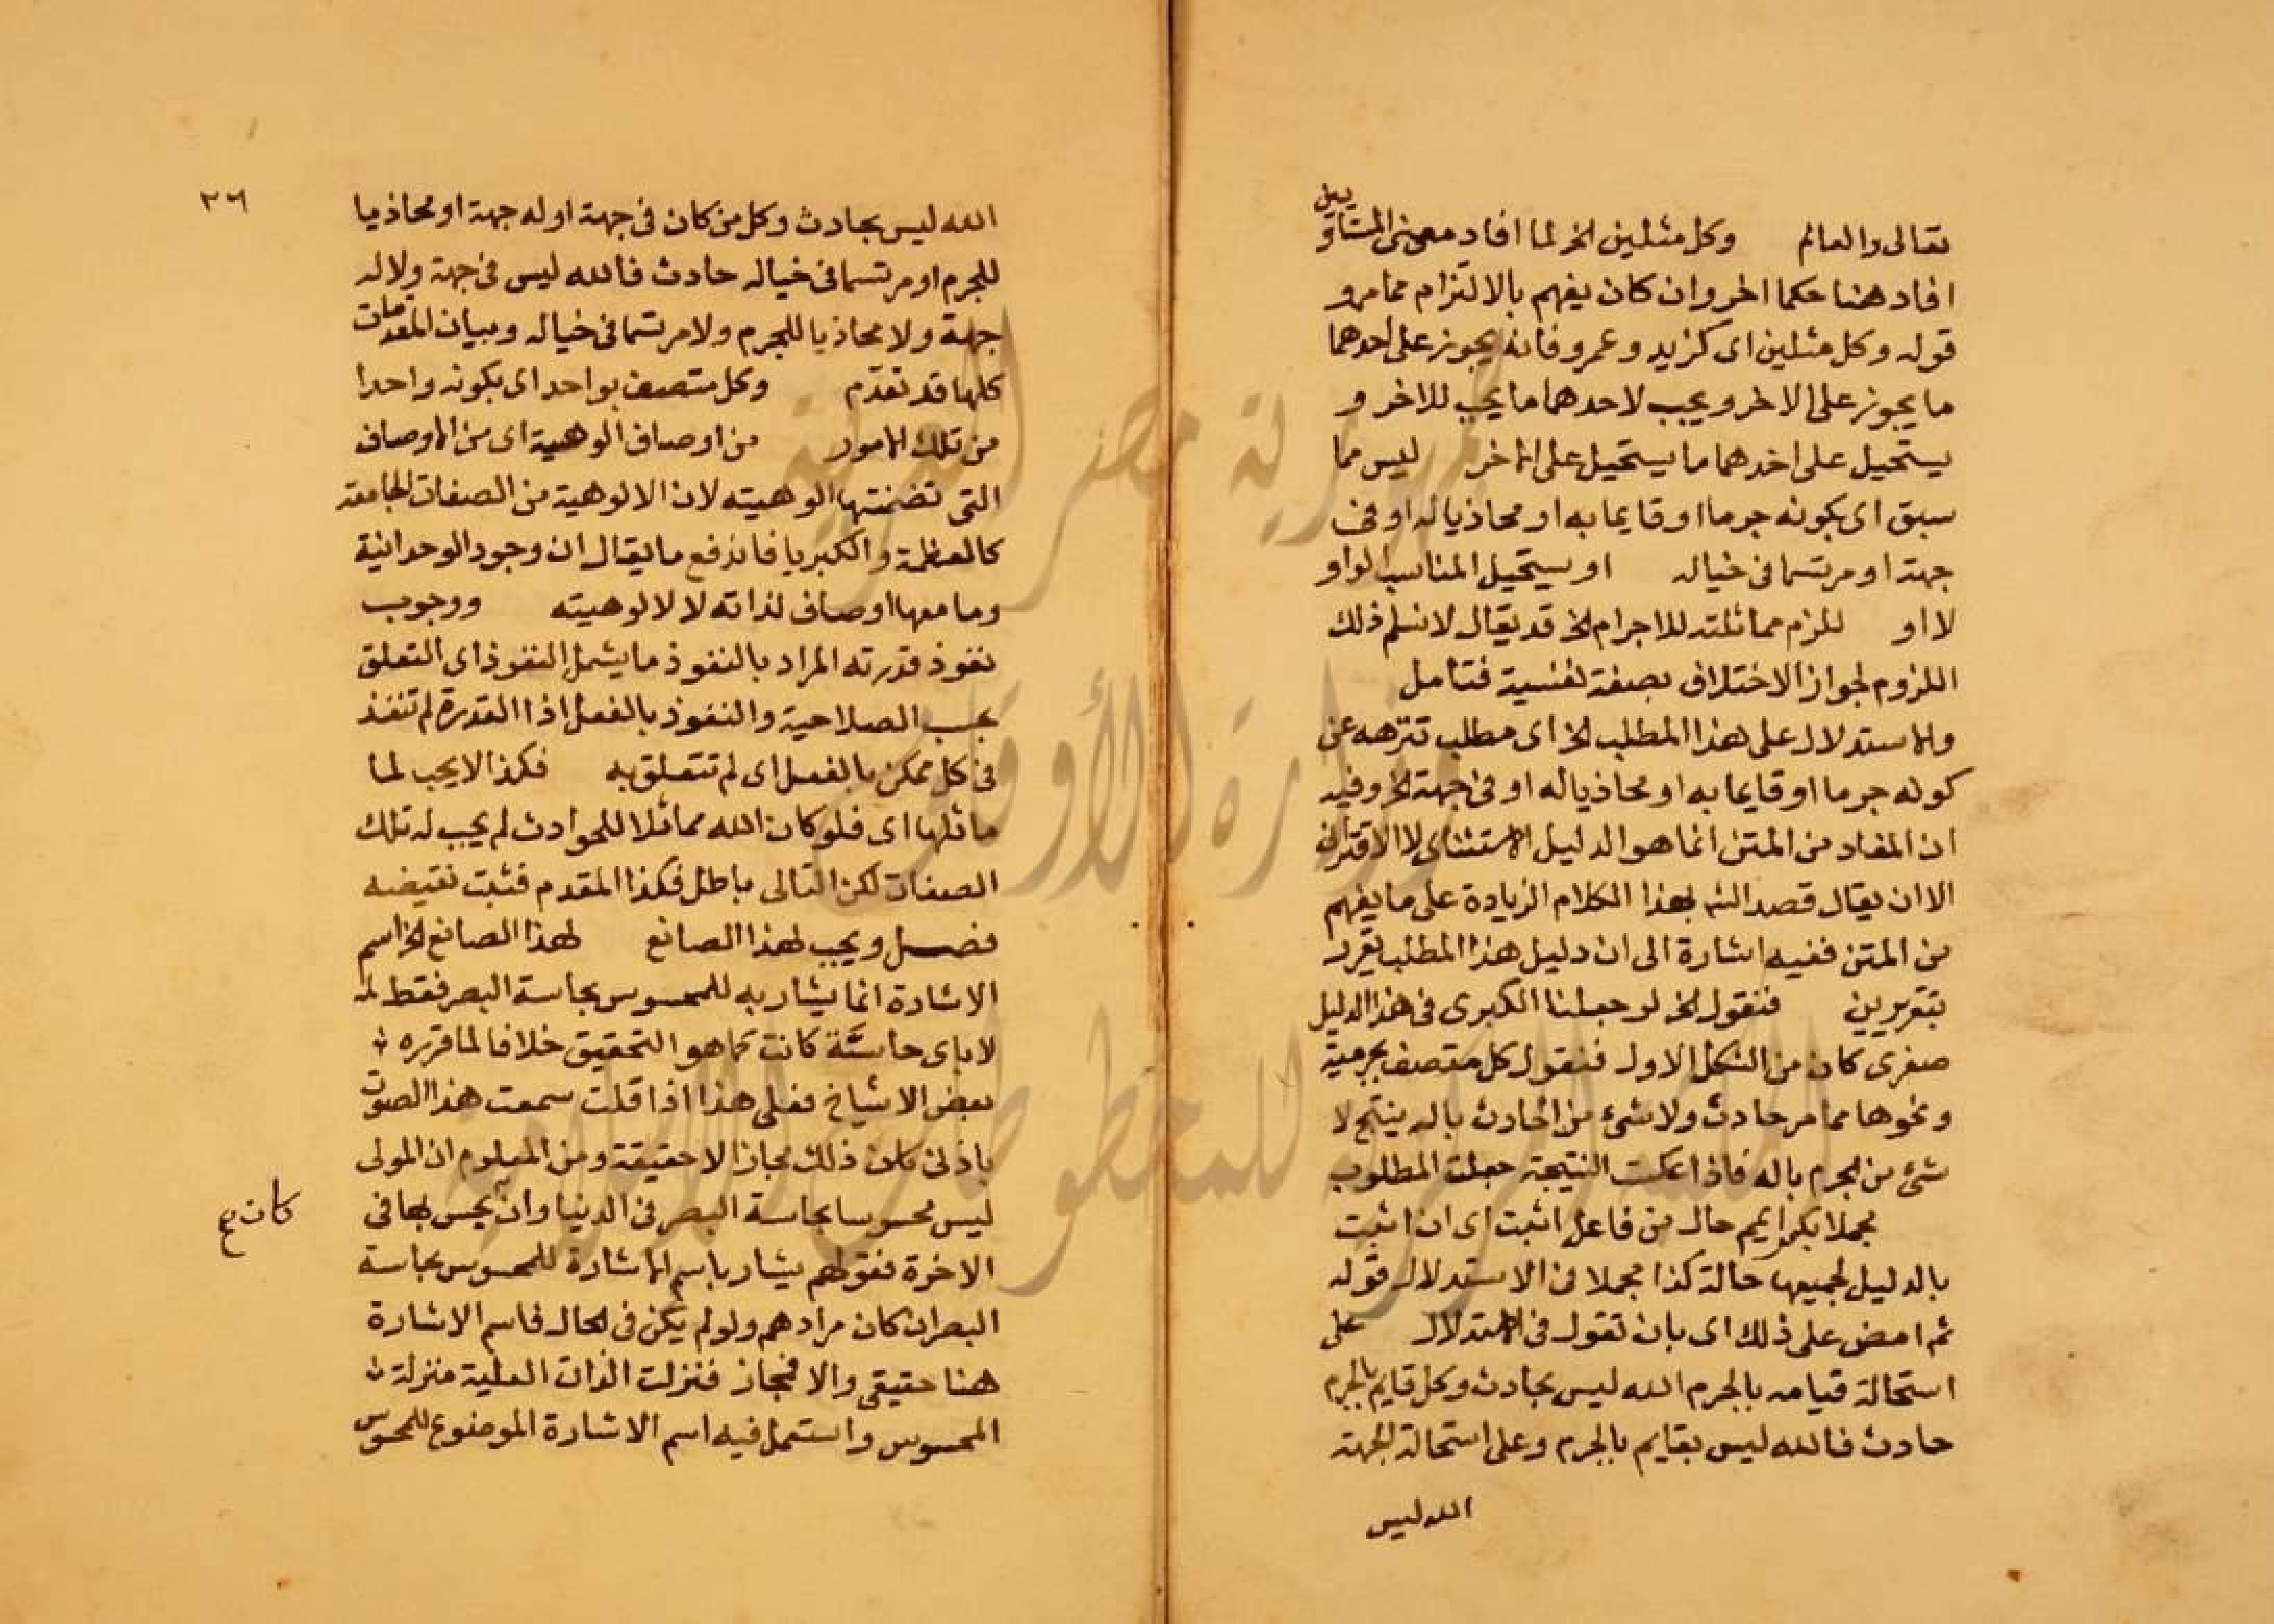 تعالى والعالم وكل مثلين الخ لما افاد معنى المتماثلين
افاد هنا حكما اخر وان كان يفهم بالالتزام مما مر و
قوله وكل مثلين اى كزيد وعمرو فانه يجوز على احدهما
ما يجوز على الاخر ويجب لاحدهما ما يجب للاخر و
يستحيل على احدهما ما يستحيل على الاخر ليس مما
سبق اى بكونه جرما او قايما به او محاذيا له او فى
جهة او مرتسما فى خياله او سيتحيل المناسب الواو
لا او للزم مماثلته للاجرام الخ قد يقال لا نسلم ذلك
اللزوم لجواز الاختلاف بصفة نفسية فتامل
والاستدلال على هذا المطلب الخ اى مطلب تنزهه عن
كونه جرما او قايما به او محاذيا له او فى جهة الخ وفيه
ان المفاد من المتن انما هو الدليل الاستثناى لا الاقترانى
الا ان يقال قصد الش بهذا الكلام الزيادة على ما يفهم
من المتن ففيه اشارة الى ان دليل هذا المطلب يقرر
بتقريرين فنقول الخ لو جعلنا الكبرى فى هذا الدليل
صغرى كان من الشكل الاول فنقول كل متصف بجرمية
ونحوها مما مر حادث ولا شئ من الحادث باله ينتج لا
شئ من الجرم باله فاذا عكست النتيجة جعلت المطلوب
مجملا بكرا يم حال من فاعل اثبت اى ان اثبت
بالدليل لجميعها حالة كذا مجملا فى الاستدلال قوله
ثم امض على ذلك اى بان تقول فى الاستدلال على
استحالة قيامه بالجرم الله ليس بحادث وكل قايم بالجرم
حادث فالله ليس بقايم بالجرم وعلى استحالة الجهة
الله ليس
٣٦
الله ليس بحادث وكل من كان فى جهة او له جهة او محاذيا
للجرم او مرتسما فى خياله حادث فالله ليس فى جهة ولا له
جهة ولا محاذيا للجرم ولا مرتسما فى خياله وبيان المقدمات
كلها قد تقدم وكل متصف بواحد اى بكونه واحدا
من تلك الامور من اوصاف الوهية اى من الاوصاف
التى تضمنتها الوهيته لان الالوهية من الصفات الجامعة
كالعظمة والكبريا فاندفع ما يقال ان وجود الوحدانية
وما معها اوصاف لذاته لا لالوهيته ووجوب
نفوذ قدرته المراد بالنفوذ ما يشمل النفوذ اى التعلق
بحسب الصلاحية والنفوذ بالفعل اذا القدرة لم تنفذ
فى كل ممكن بالفعل اى لم تتعلق به فكذا لا يجب لما
ماثلها اى فلو كان الله مماثلا للحوادث لم يجب له تلك
الصفات لكن التالى باطل فكذا المقدم فثبت نقيضه
فصل ويجب لهذا الصانع لهذا الصانع الخ اسم
الاشادة انما يشار به للمحسوس بحاسة البصر فقط لم
لا باى حاسة كانت كما هو التحقيق خلافا لما قرره
بعض الاشياخ فعلى هذا اذا قلت سمعت هذا الصوت
باذنى كان ذلك مجازا لا حقيقة ومن المعلوم ان المولى
ليس محسوسا بحاسة البصر فى الدنيا وان يحس بها فى
كان
الاخرة فقولهم يشار باسم الاشارة للمحسوس بحاسة
البصر ان كان مرادهم ولو لم يكن فى الحال فاسم الاشارة
هنا حقيقى والا فمجاز فنزلت الذات العلية منزلة
المحسوس واستعمل فيه اسم الاشارة الموضوع للمحسوس
جمهورية مصر العربية
وزارة الأوقاف
المكتبة المركزية للمخطوطات الإسلامية